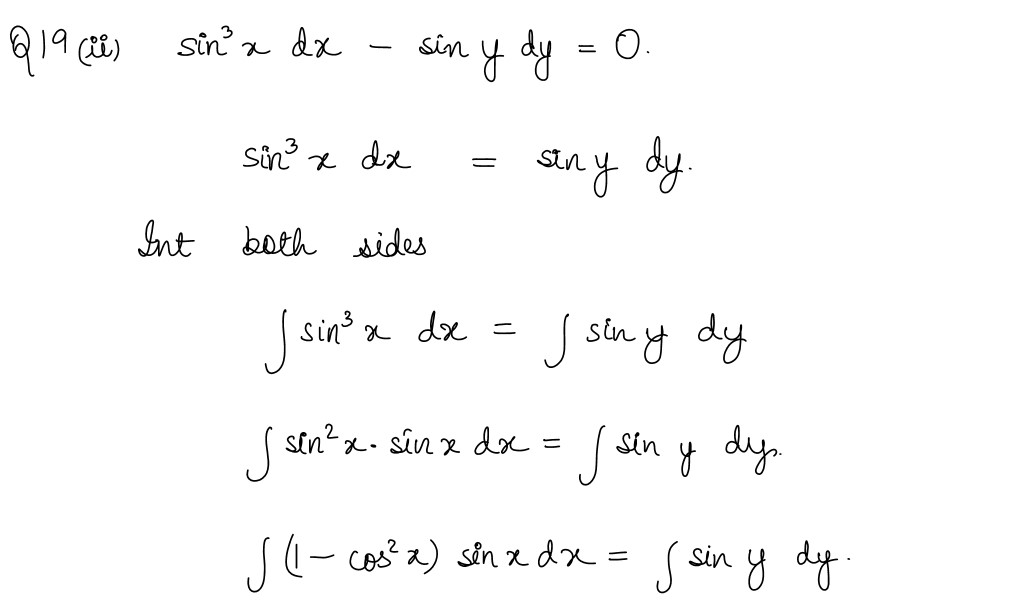 Q19 (ii) sin³ x dx − sin y dy = 0.
sin³ x dx = sin y dy.
Int both sides
∫ sin³ x dx = ∫ sin y dy
∫ sin² x · sin x dx = ∫ sin y dy.
∫ (1 − cos² x) sin x dx = ∫ sin y dy.